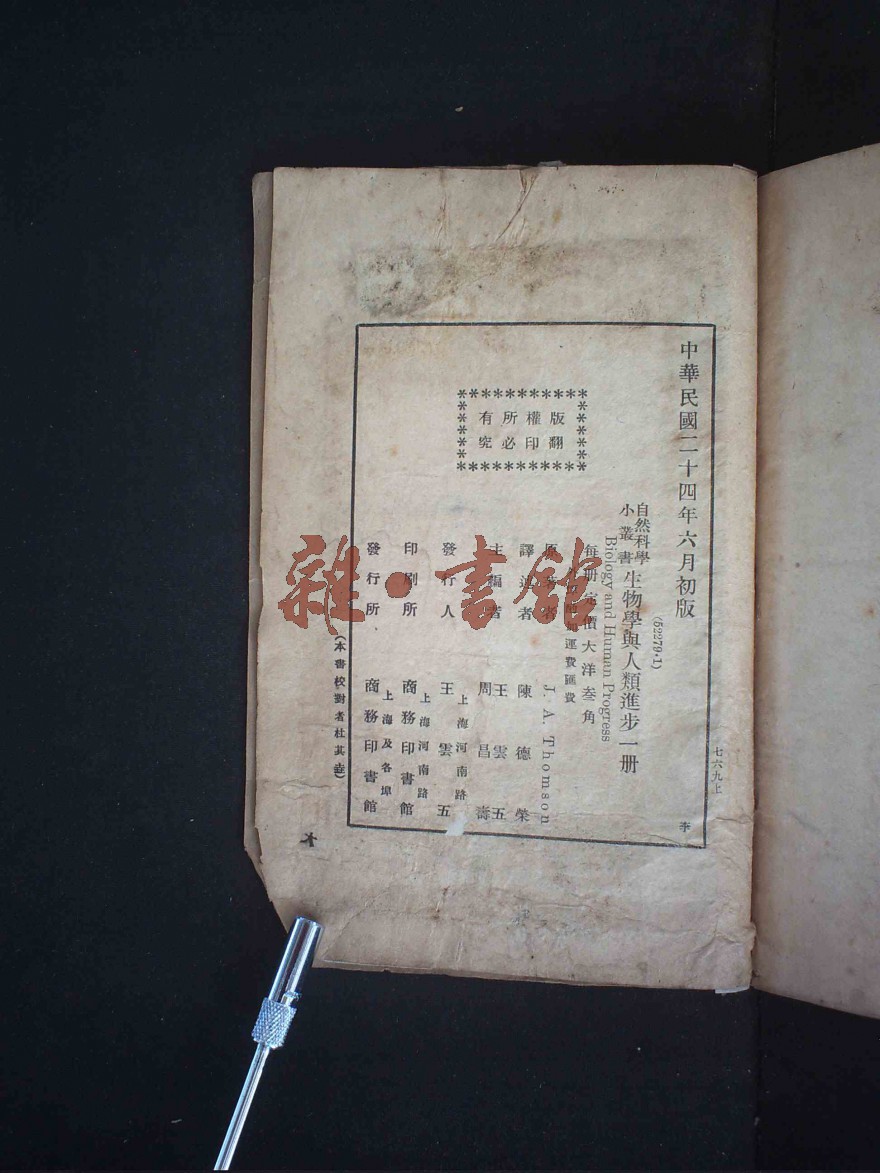 中華民國二十四年六月初版
(52279·1)
自然科學
小叢書
生物學與人類進步一册
Biology and Human Progress
每册定價大洋叁角
運費匯費
原著者 J. A. Thomson
譯述者 陳德榮
主編者 王雲五
周昌壽
上海河南路
發行人 王雲五
上海河南路
印刷所 商務印書館
上海及各埠
發行所 商務印書館
版權所有
翻印必究
(本書校對者杜其垚)
七六九上
雜·書館